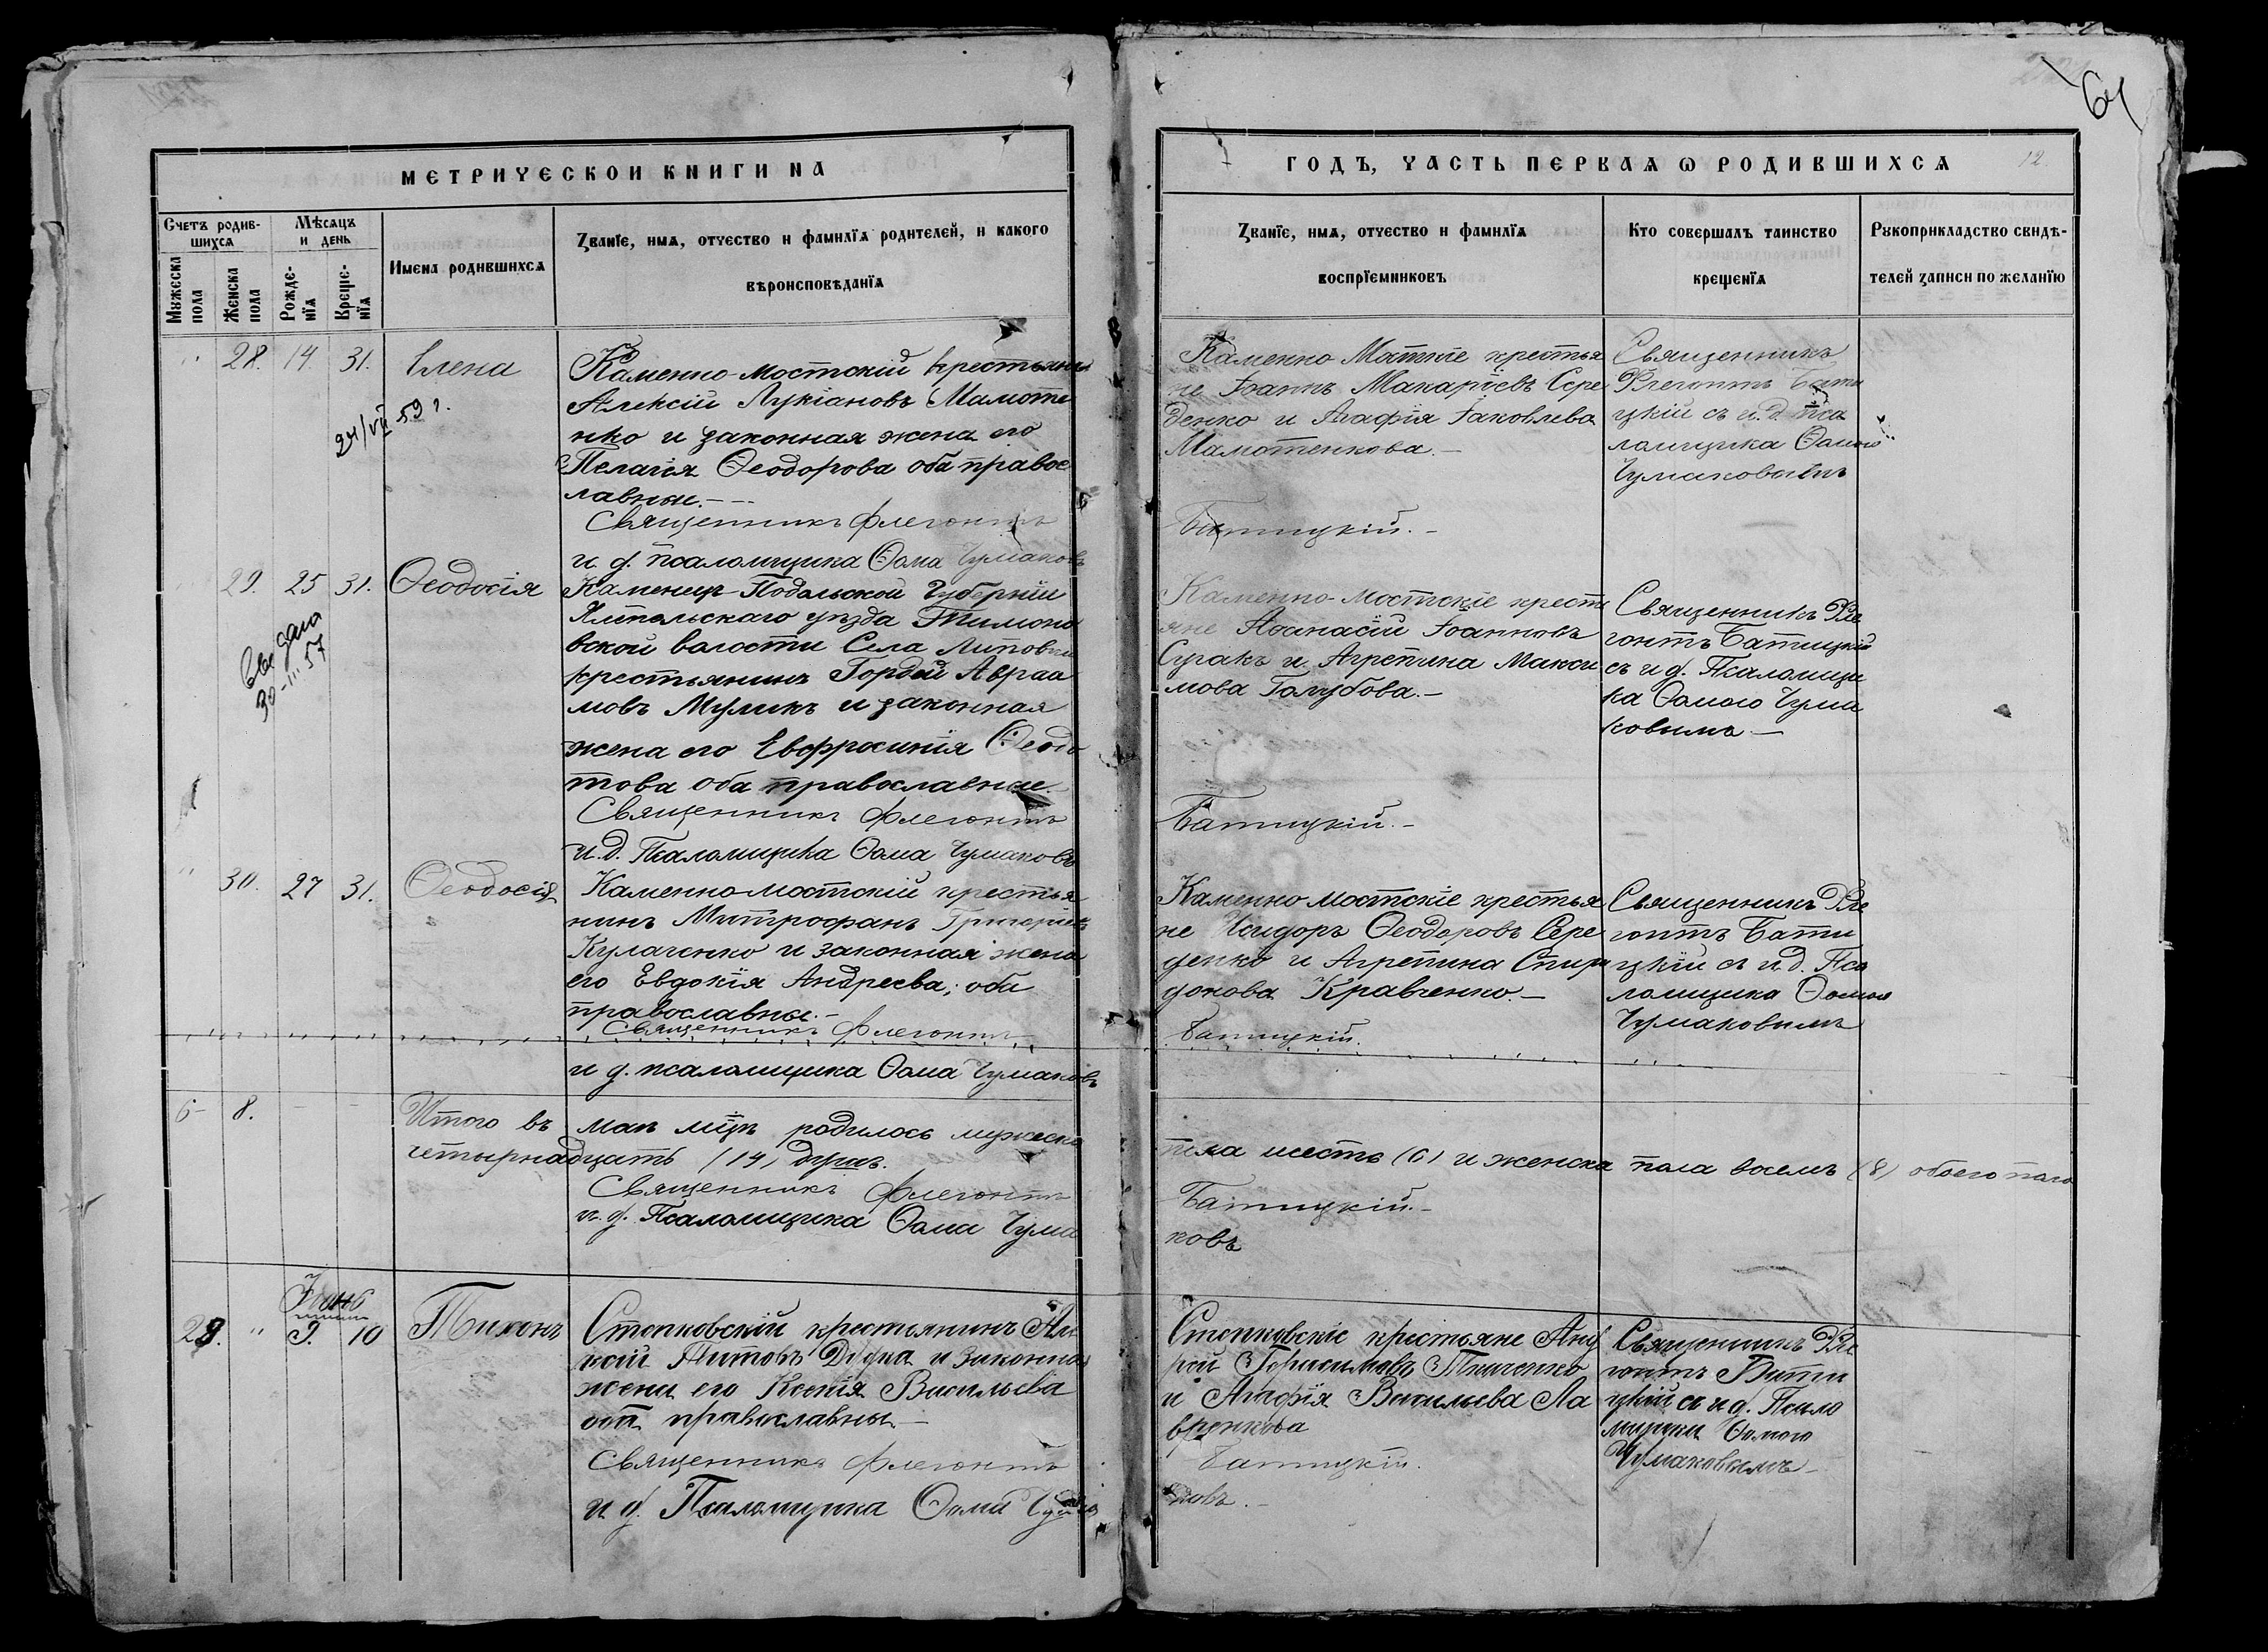 64
МЕТРИЧЕСКОИ КНИГИ НА
ГОДЪ, ЧАСТЬ ПЕРВАѦ Ѡ РОДИВШИХСѦ
12.
Счетъ родив-
шихсѧ
Мѣсѧцъ
и день
Мꙋжеска
пола
Женска
пола
Рожде-
нїѧ
Креще-
нїѧ
Имена родившихсѧ
Званїе, имѧ, отчество и фамилїѧ родителей, и какого
вѣроисповѣданїѧ
Званїе, имѧ, отчество и фамилїѧ
воспрїемниковъ
Кто совершалъ таинство
крещенїѧ
Рꙋкоприкладство свидѣ-
телей записи по желанїю
28. 14. 31. Елена
24/VII 59 г.
Каменно-мостскій крестьянинъ
Алексій Лукіановъ Мамоте
нко и законная жена его
Пелагія Ѳеодорова оба правос
лавные.
Священникъ Флегонтъ
и. д. псаломщика Ѳома Чумаковъ
Каменно Мостскіе крестья
не Іоаннъ Макаріевъ Сере
денко и Агафія Іаковлева
Мамотенкова.
Батицкій.
Священникъ
Флегонтъ Бати
цкій съ и. д. пса
ломщика Ѳомою
Чумаковымъ
29. 25 31. Ѳеодосія
30-II-57
Каменецъ-Подольской Губерніи
Ямпольскаго уѣзда Тимоно
вской волости Села Липовки
крестьянинъ Гордей Авраа
мовъ Муликъ и законная
жена его Евфросинія Ѳеодо
това оба православные.
Священникъ Флегонтъ
и. д. Псаломщика Ѳома Чумаковъ
Каменно-мостскіе кресть
яне Аѳанасій Іоанновъ
Сусакъ и Агрепина Макси
мова Голубова.
Батицкій.
Священникъ Фле
гонтъ Батицкій
съ и д. Псаломщи
ка Ѳомою Чума
ковымъ
30. 27 31. Ѳеодосія
Каменно мостскій крестья
нинъ Митрофанъ Григорьевъ
Кулаченко и законная жена
его Евдокія Андреева; оба
православны.
Священникъ Флегонтъ
и д. псаломщика Ѳома Чумаковъ
Каменно мостскіе крестья
не Исидоръ Ѳеодоровъ Сере
денко и Агрепина Спири
донова Кравченко.
Батицкій.
Священникъ Фле
гонтъ Бати
цкій съ и. д. Пса
ломщика Ѳомою
Чумаковымъ
6 - 8. Итого въ маѣ мцѣ родилось мужеска
пола шесть (6) и женска пола восемь (8) обоего пола
четырнадцать (14) душъ.
Священникъ Флегонтъ
Батицкій.
и. д. Псаломщика Ѳома Чума
ковъ
Іюнь
29. " 9. 10 Тихонъ
Степковскій крестьянинъ Але
ксій Антовъ Дудка и законная
жена его Ксенія Васильева
оба православны.
Священникъ Флегонтъ
и д. Псаломщика Ѳома Чума
Степковскіе крестьяне Анд
рей Герасимовъ Ткаченко
и Агафія Васильева Ла
вренкова
Батицкій.
ковъ.
Священникъ Фле
гонтъ Бати
цкій съ и д. Псало
мщика Ѳомою
Чумаковымъ